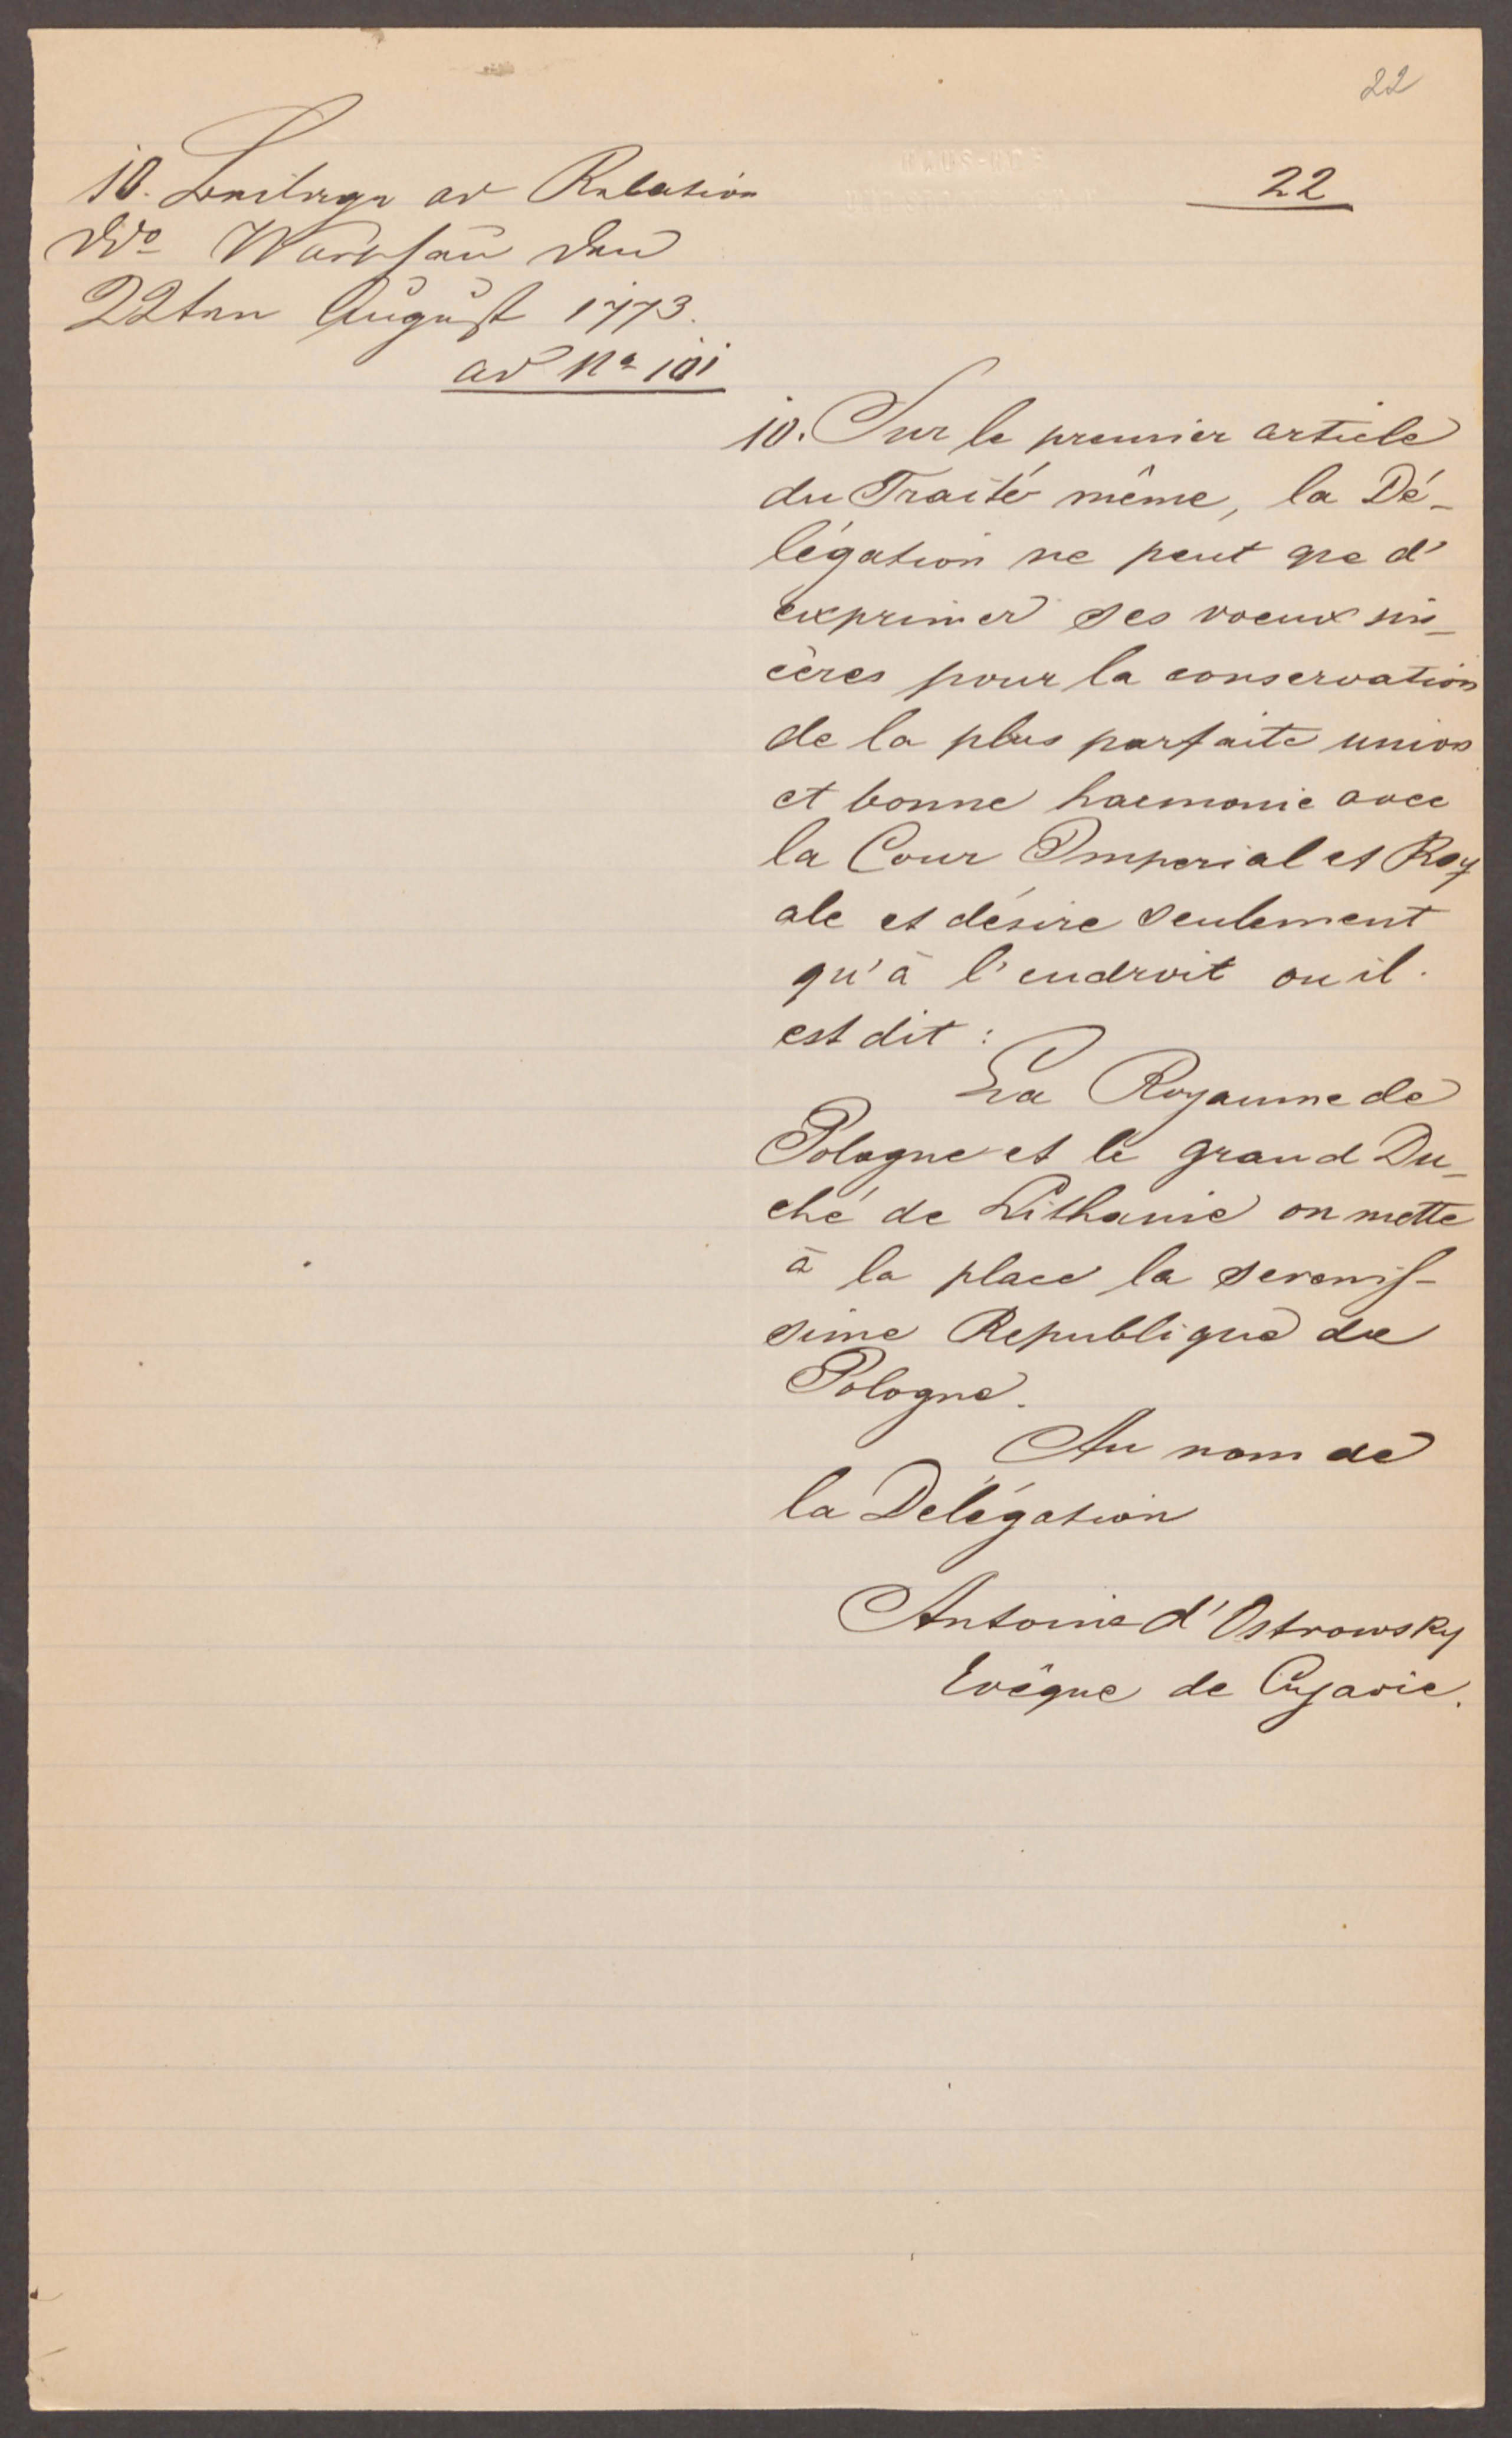 22
10. Beilage ad Relation
ddo Warschau den
22ten August 1773.
ad No 101
22
10. Sur le premier article
du Traité même, la Dé-
légation ne peut que d'
exprimer ses voeux sin-
cères pour la conservation
de la plus parfaite union
et bonne harmonie avec
la Cour Imperial et Roy
ale et désire seulement
qu'à l'endroit ou il
est dit :
La Royaume de
Pologne et le grand Du-
ché de Lithanie on mette
à la place la serenis-
sime Republique de
Pologne.
Au nom de
la Delégation
Antoine d'Ostrowsky
Evêque de Cujavie.